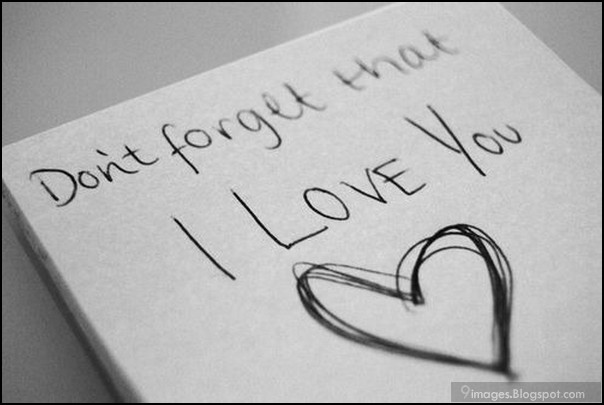 Don't forget that
I LOVE You
9images.Blogspot.com